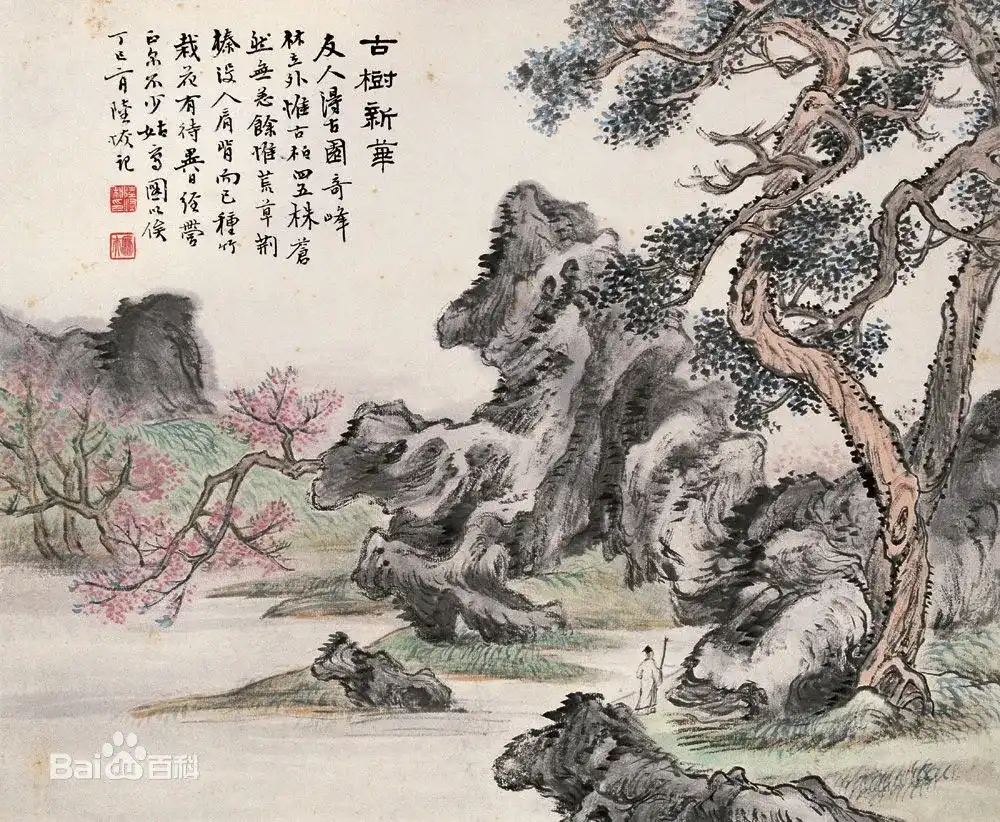 古樹新華
友人得古園奇峰
林立外惟古柏四五株蒼
然無恙餘惟荒草荊
榛沒人肩背而已種竹
栽花有待異日經營
正不少姑寫圖以俟
丁巳月陸恢記
Bai百科